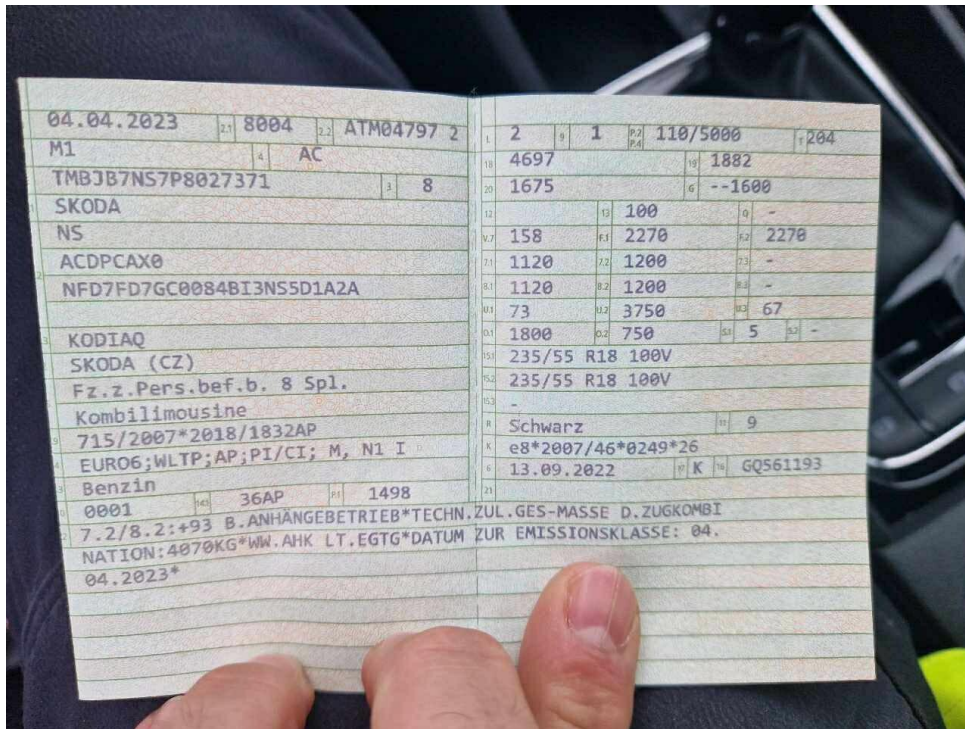 04.04.2023 2.1 8004 2.2 ATM04797 2
M1 4 AC
TMBJB7NS7P8027371 3 8
SKODA
NS
ACDPCAX0
NFD7FD7GC0084BI3NS5D1A2A
KODIAQ
SKODA (CZ)
Fz.z.Pers.bef.b. 8 Spl.
Kombilimousine
715/2007*2018/1832AP
EURO6;WLTP;AP;PI/CI; M, N1 I
Benzin
0001 14.1 36AP P.1 1498
L 2 9 1 P.2 P.4 110/5000 T 204
18 4697 19 1882
20 1675 G --1600
12 13 100 Q -
V.7 158 F.1 2270 F.2 2270
7.1 1120 7.2 1200 7.3 -
8.1 1120 8.2 1200 8.3 -
U.1 73 U.2 3750 U.3 67
O.1 1800 O.2 750 S.1 5 S.2 -
15.1 235/55 R18 100V
15.2 235/55 R18 100V
15.3 -
R Schwarz 11 9
K e8*2007/46*0249*26
6 13.09.2022 17 K 16 GQ561193
21
7.2/8.2:+93 B.ANHÄNGEBETRIEB*TECHN.ZUL.GES-MASSE D.ZUGKOMBI
NATION:4070KG*WW.AHK LT.EGTG*DATUM ZUR EMISSIONSKLASSE: 04.
04.2023*